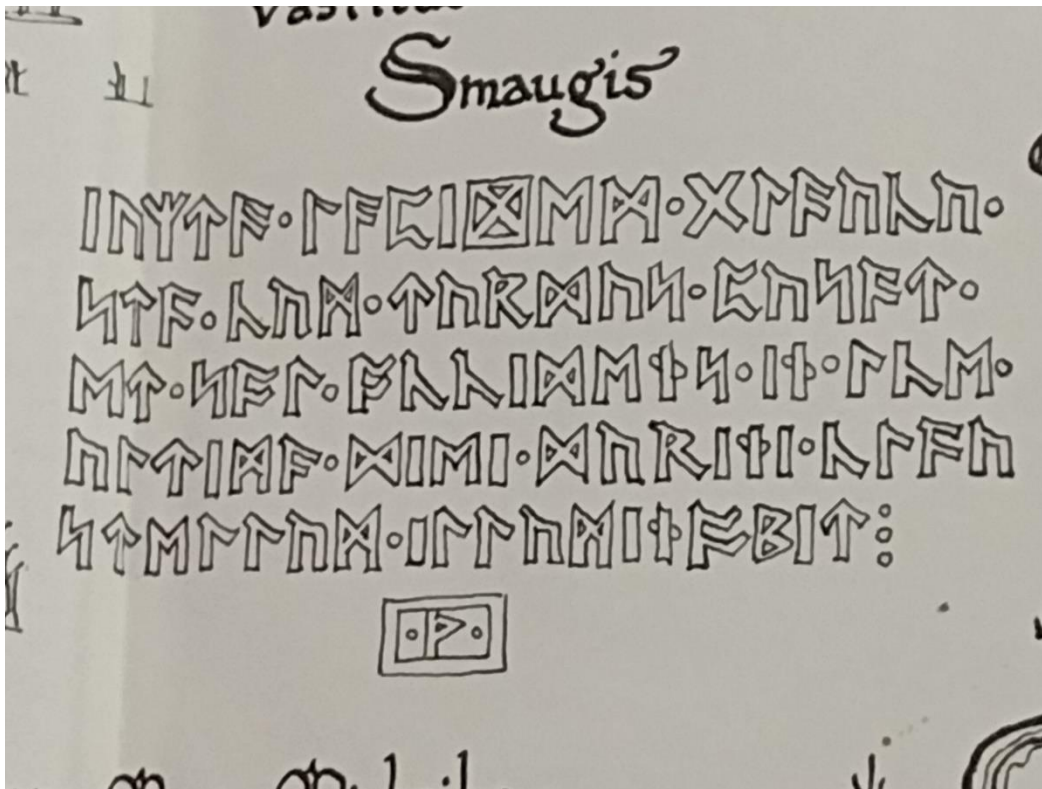 Smaugis
ᛁᚢᛉᛏᚫ᛫ᛚᚫᛈᛁᛞᛖᛗ᛫ᚷᛚᚫᚢᚳᚢ᛫
ᛋᛏᚫ᛫ᚳᚢᛗ᛫ᛏᚢᚱᛞᚢᛋ᛫ᛈᚢᛋᚫᛏ᛫
ᛖᛏ᛫ᛋᚫᛚ᛫ᚩᚳᚳᛁᛞᛖᚾᛋ᛫ᛁᚾ᛫ᛚᚳᛖ᛫
ᚢᛚᛏᛁᛗᚫ᛫ᛞᛁᛖᛁ᛫ᛞᚢᚱᛁᚾᛁ᛫ᚳᛚᚫᚢ
ᛋᛏᛖᛚᛚᚢᛗ᛫ᛁᛚᛚᚢᛗᛁᚾᚩᛒᛁᛏ⁝
᛫ᚦ᛫